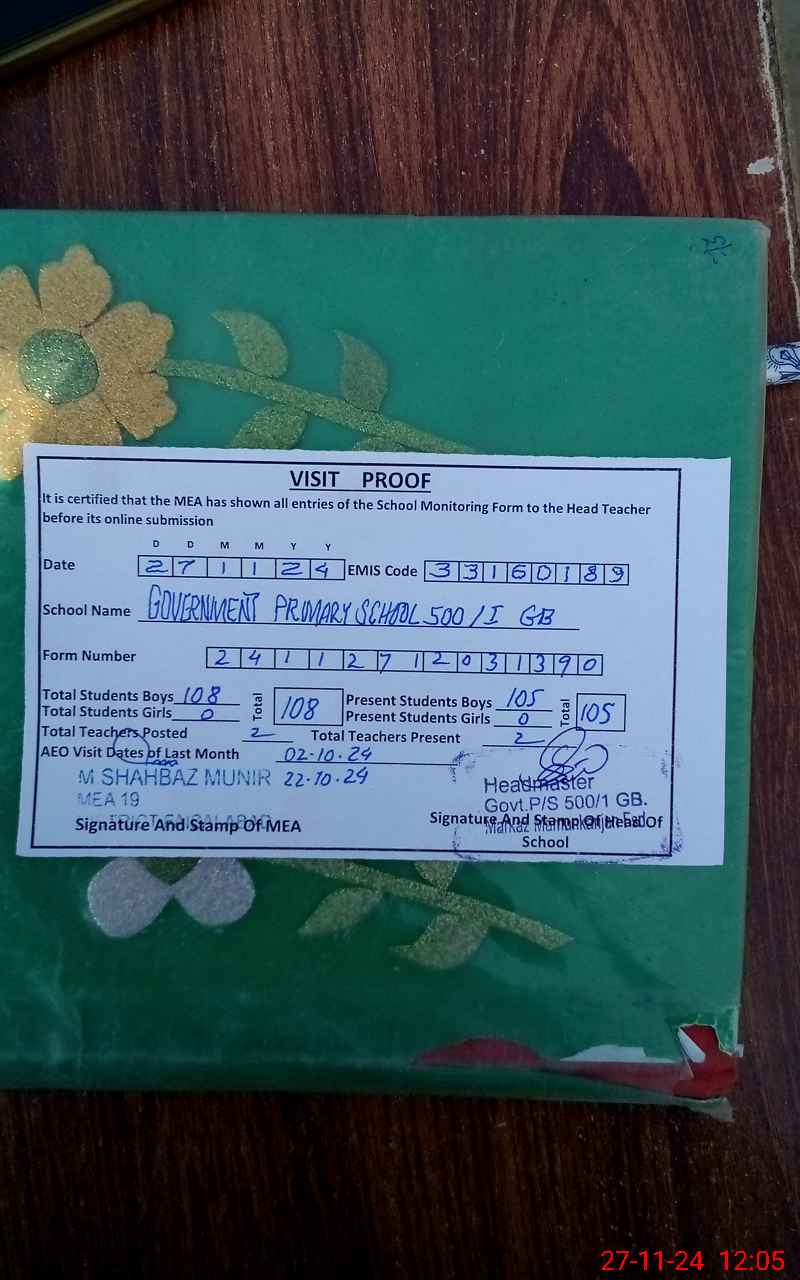 VISIT PROOF
It is certified that the MEA has shown all entries of the School Monitoring Form to the Head Teacher
before its online submission
D D M M Y Y
Date 2 7 1 1 2 4 EMIS Code 3 3 1 6 0 1 8 9
School Name GOVERNMENT PRIMARY SCHOOL 500/I GB
Form Number 2 4 1 1 2 7 1 2 0 3 1 3 9 0
Total Students Boys 108 Total 108 Present Students Boys 105 Total 105
Total Students Girls 0 Present Students Girls 0
Total Teachers Posted 2 Total Teachers Present 2
AEO Visit Dates of Last Month 02-10-24
M.SHAHBAZ MUNIR 22-10-24
MEA 19
Signature And Stamp Of MEA
Headmaster
Govt.P/S 500/1 GB.
Signature And Stamp Of Head Of
School
27-11-24 12:05